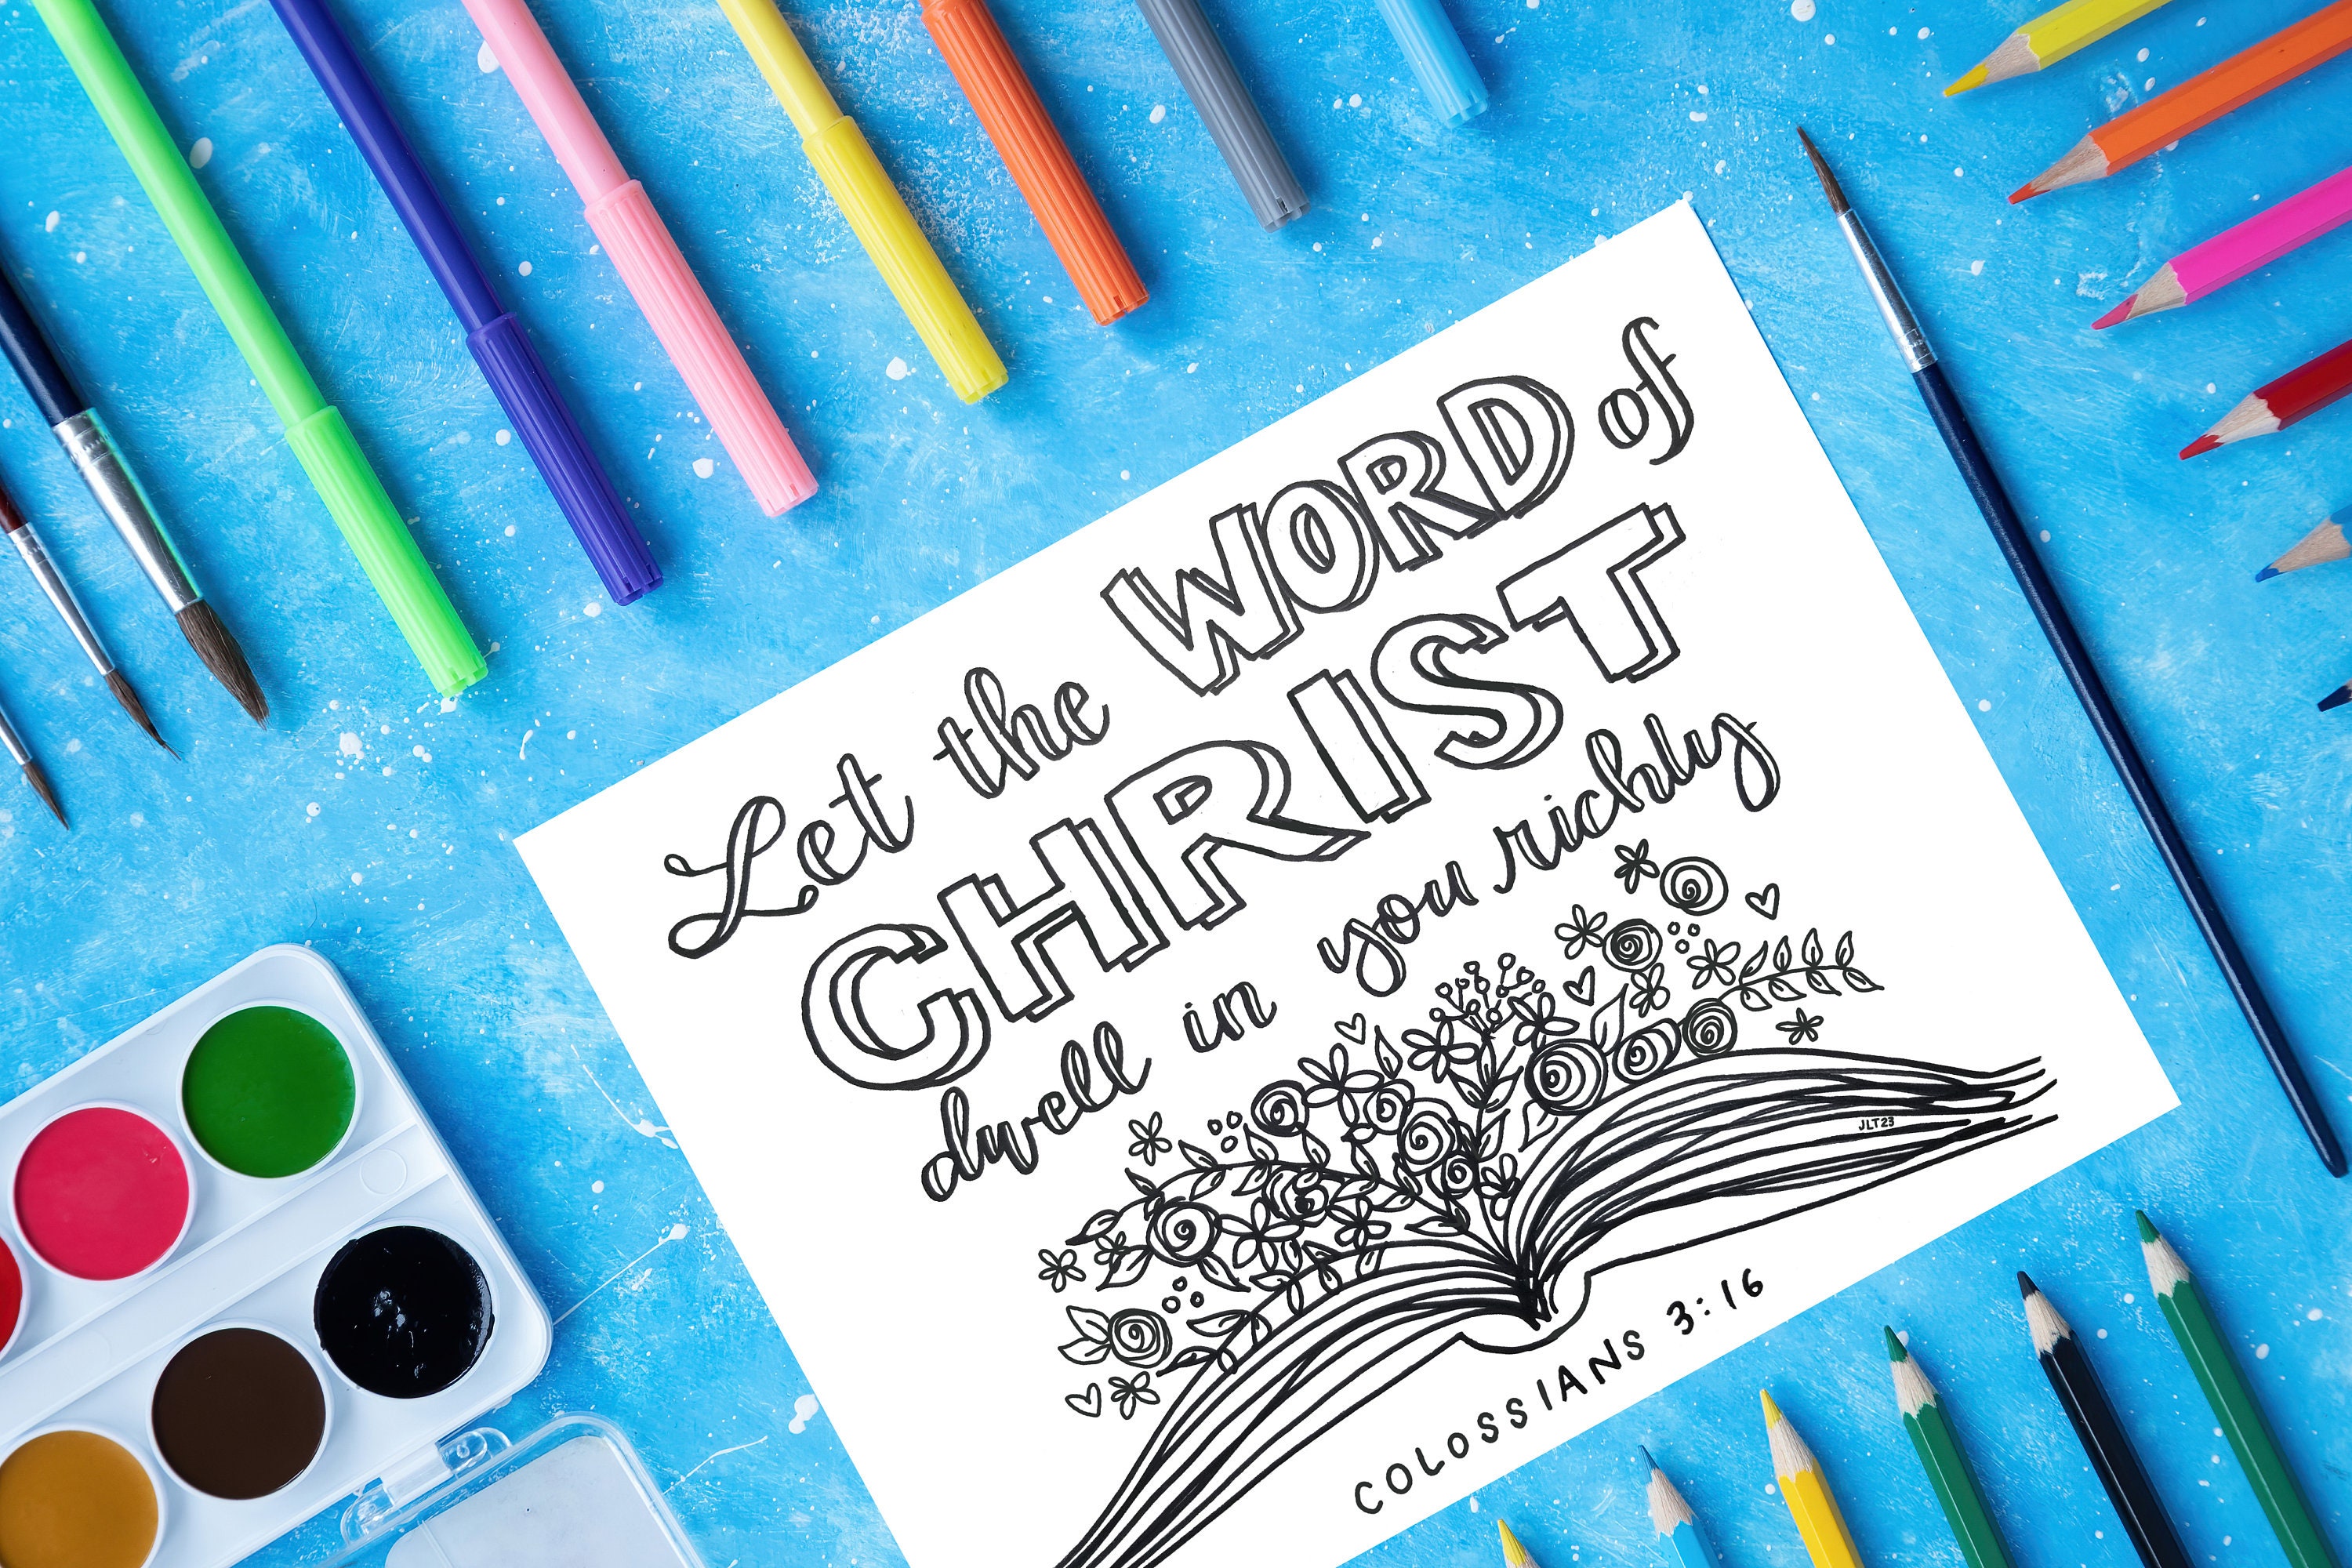 Let the WORD of
CHRIST
dwell in you richly
JLT23
COLOSSIANS 3:16